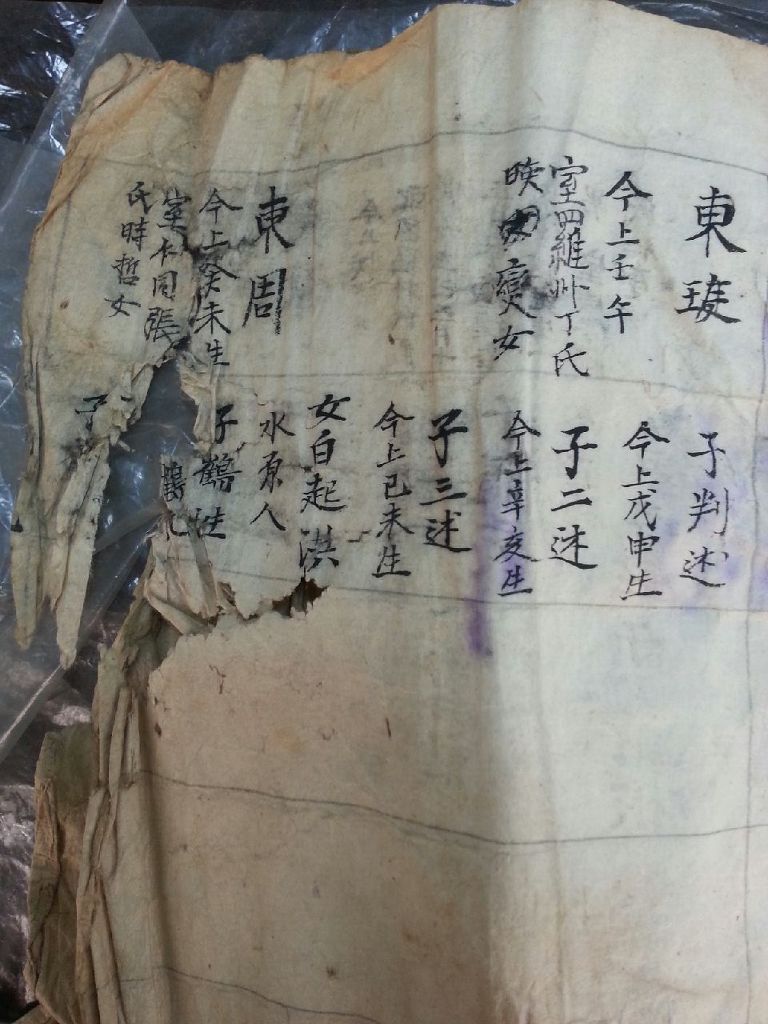 東珽
今上壬午
室羅州丁氏
變女
東周
今上癸未生
室 同張
氏時哲女
子判述
今上戊申生
子二述
今上辛亥生
子三述
今上己未生
女白起洪
水原人
子鶴性
子